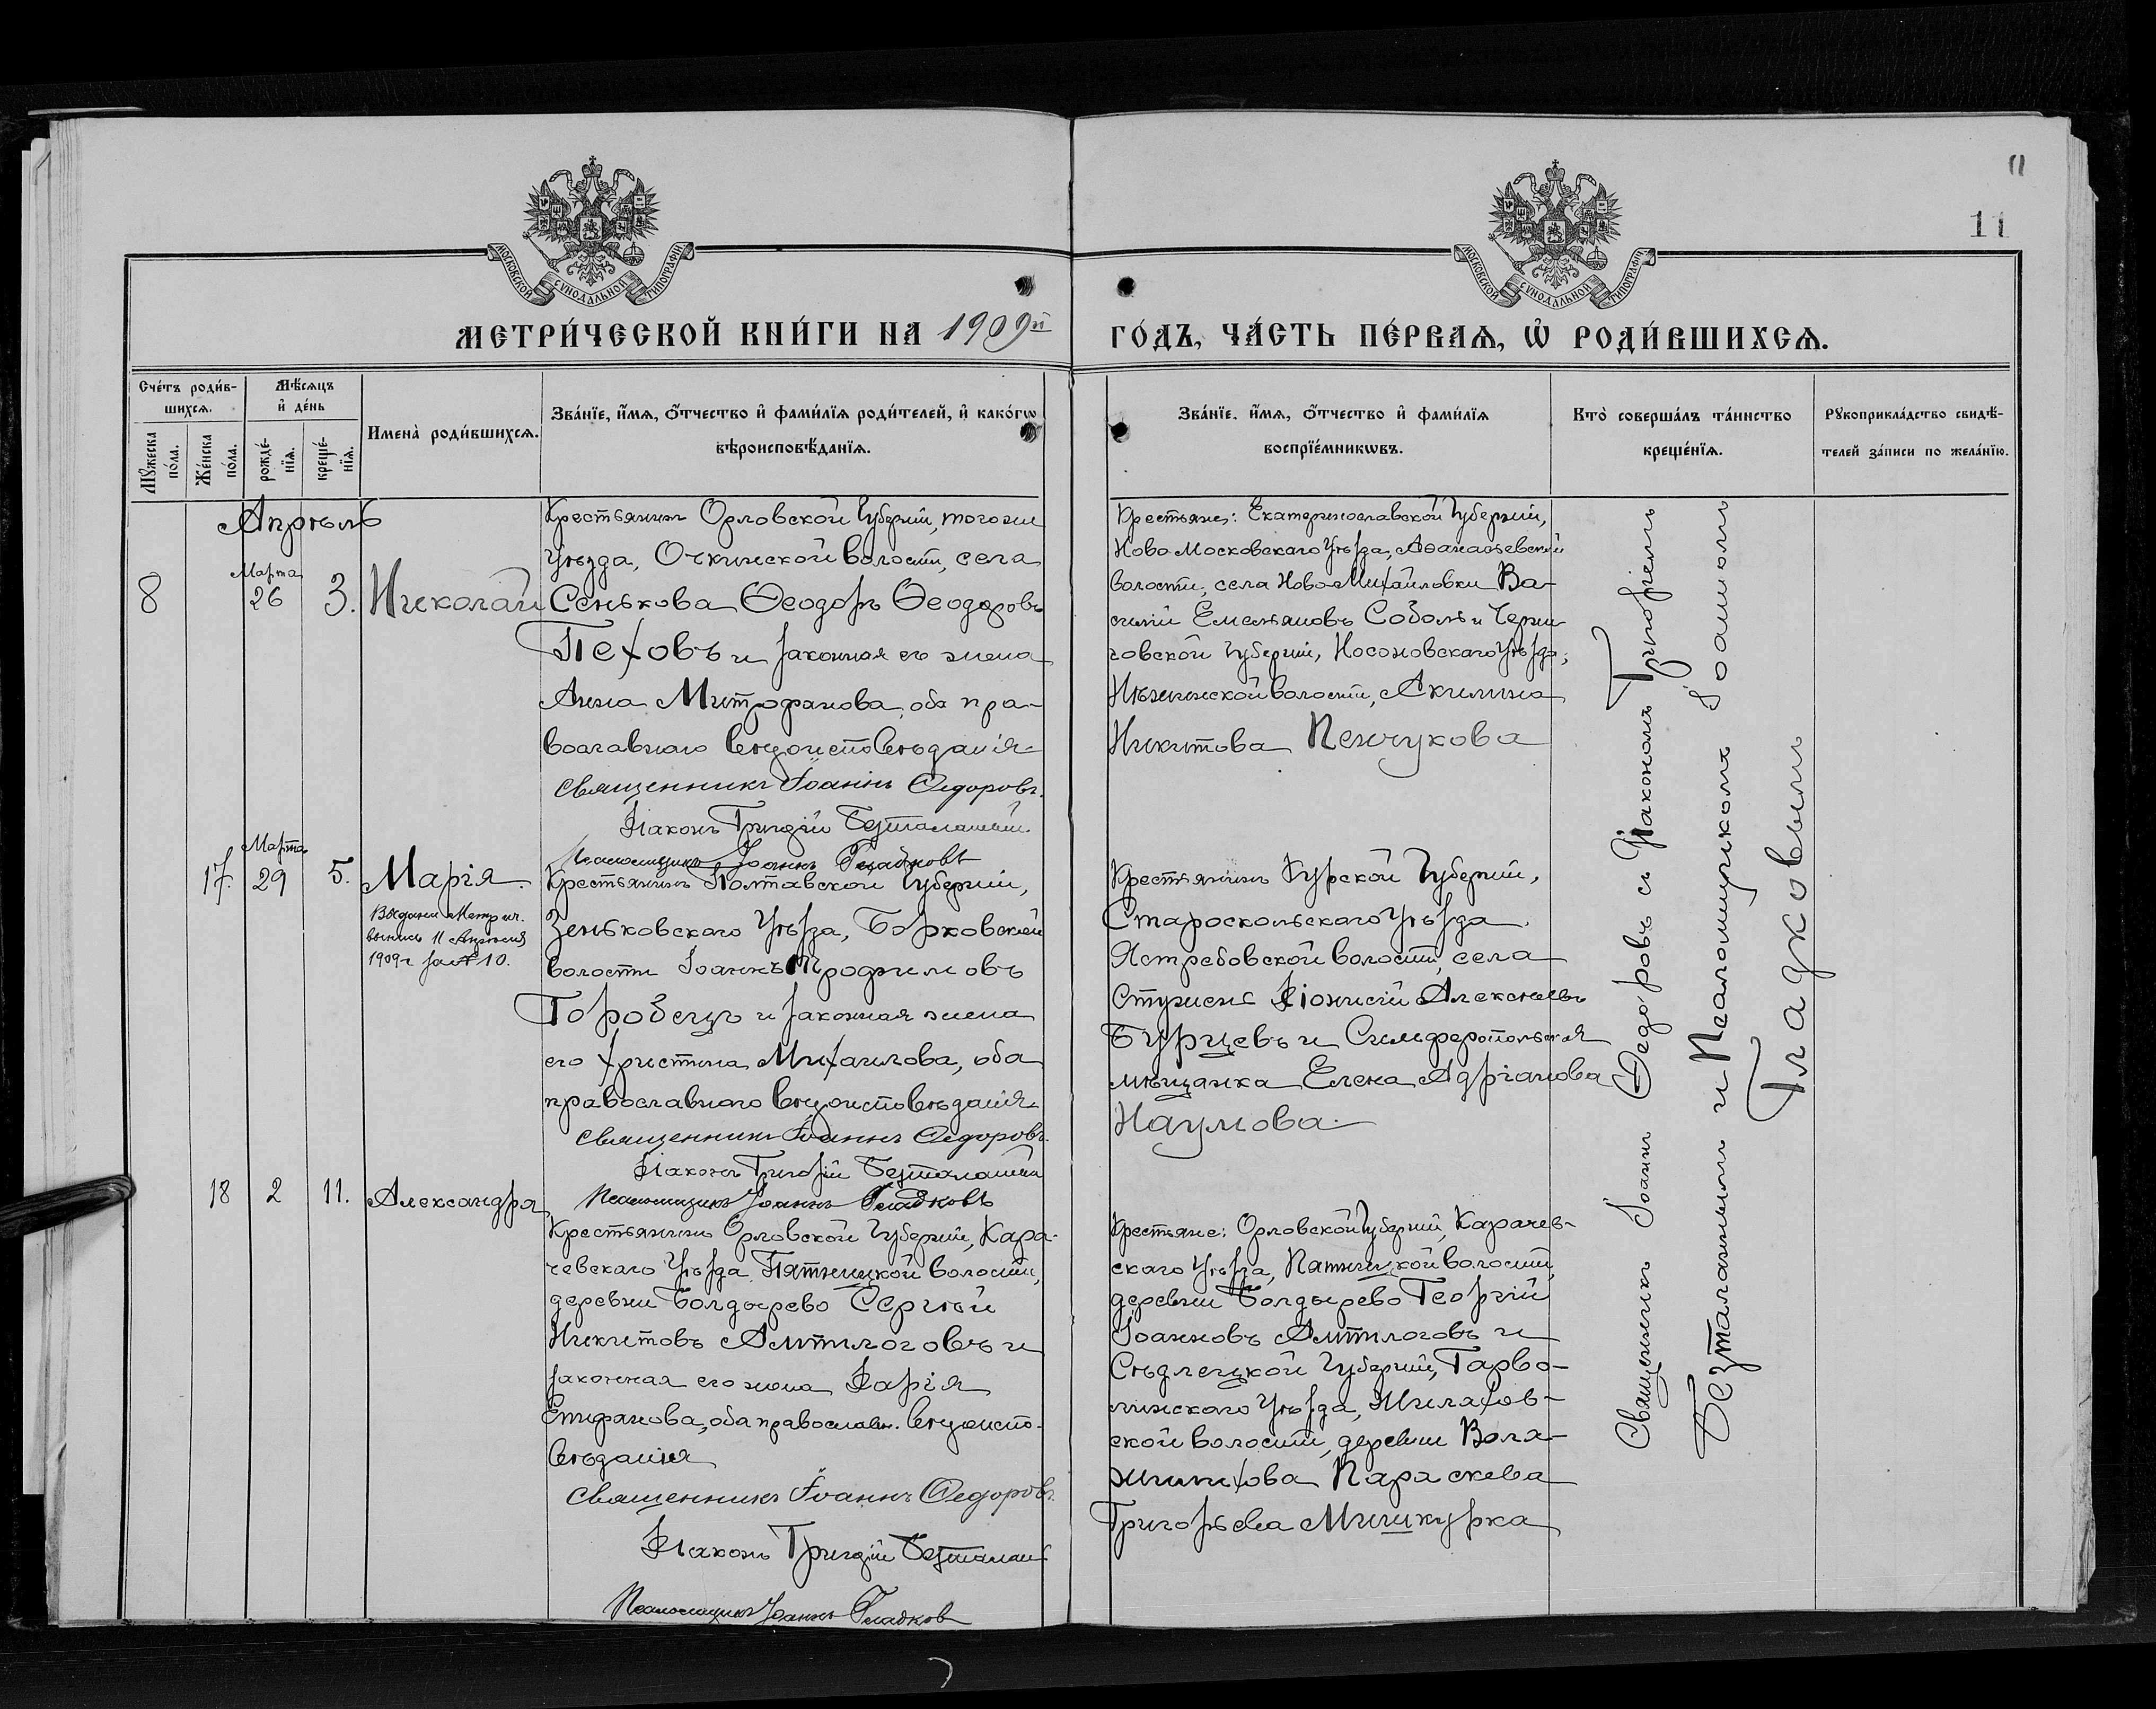 11
МОСКОВСКОЙ СѴНОДАЛЬНОЙ ТИПОГРАФІИ
МОСКОВСКОЙ СѴНОДАЛЬНОЙ ТИПОГРАФІИ
МЕТРИ́ЧЕСКОЙ КНИ́ГИ НА 1909й
ГО́ДЪ, ЧА́СТЬ ПЕ́РВАЯ, Ѡ РОДИ́ВШИХСЯ.
Сче́тъ роди́в-
шихся.
Мꙋжеска по́ла.
Же́нска по́ла.
Мѣ́сяцъ
и҆ де́нь
рожде́-
нїя.
креще́-
нїя.
Имена̀ роди́вшихся.
Зва́нїе, и҆́мя, ѻ҆́тчество и҆ фами́лїя роди́телей, и҆ како́гѡ
вѣроисповѣ́данїя.
Зва́нїе. и҆́мя, ѻ҆́тчество и҆ фами́лїя
воспрїе́мникѡвъ.
Кто̀ соверша́лъ та́инство
креще́нїя.
Рꙋкоприкла́дство свидѣ́-
телей за́писи по жела́нїю.
Апрѣль
8
Марта
26
3.
Николай
Крестьянинъ Орловской Губерніи, того же
Уѣзда, Очкинской волости, села
Сенькова Ѳеодоръ Ѳеодоровъ
Пеховъ и законная его жена
Анна Митрофанова, оба пра-
вославнаго вѣроисповѣданія.
Священникъ Іоаннъ Ѳедоровъ.
Діаконъ Григорій Безталанный
Псаломщикъ Іоаннъ Гладковъ
Крестьяне: Екатеринославской Губерніи,
Ново Московскаго Уѣзда, Аѳанасьевской
волости, села Ново-Михайловки Ва-
силій Емельяновъ Соболь и Черни-
говской Губерніи, Носововскаго Уѣзда,
Нѣжинской волости, Акилина
Никитова Пенчукова
17.
Марта
29
5.
Марія.
Выдана Метрич.
выпись 11 Апрѣля
1909 г за № 10.
Крестьянинъ Полтавской Губерніи,
Зеньковскаго Уѣзда, Борковской
волости Іоаннъ Трофимовъ
Горобецъ и законная жена
его Христина Михаилова, оба
православнаго вѣроисповѣданія.
Священникъ Іоаннъ Ѳедоровъ.
Діаконъ Григорій Безталанный
Псаломщикъ Іоаннъ Гладковъ
Крестьянинъ Курской Губерніи,
Староскольскаго Уѣзда
Ястребовской волости, села
Стужень Діонисій Алексѣевъ
Бурцевъ и Симферопольская
мѣщанка Елена Адріанова
Наумова.
18
2
11.
Александра
Крестьянинъ Орловской Губерніи, Кара-
чевскаго Уѣзда, Пятницкой волости,
деревни Болдырево Сергѣй
Никитовъ Антилоговъ и
законная его жена Дарія
Епифанова, оба православн. вѣроиспо-
вѣданія
Священникъ Іоаннъ Ѳедоровъ.
Діаконъ Григорій Безталан
Псаломщикъ Іоаннъ Гладков
Крестьяне: Орловской Губерніи, Карачев-
скаго Уѣзда, Пятницкой волости
деревни Болдырево Георгій
Іоанновъ Антилоговъ и
Сѣдлецкой Губерніи, Гарво-
линскаго Уѣзда,
ской волости, деревни Воля-
Параскева
Григорьева Мишкурка
Священникъ Іоаннъ Ѳедоровъ съ Діакономъ Григоріемъ
Безталаннымъ и Псаломщикомъ Іоанномъ
Гладковымъ